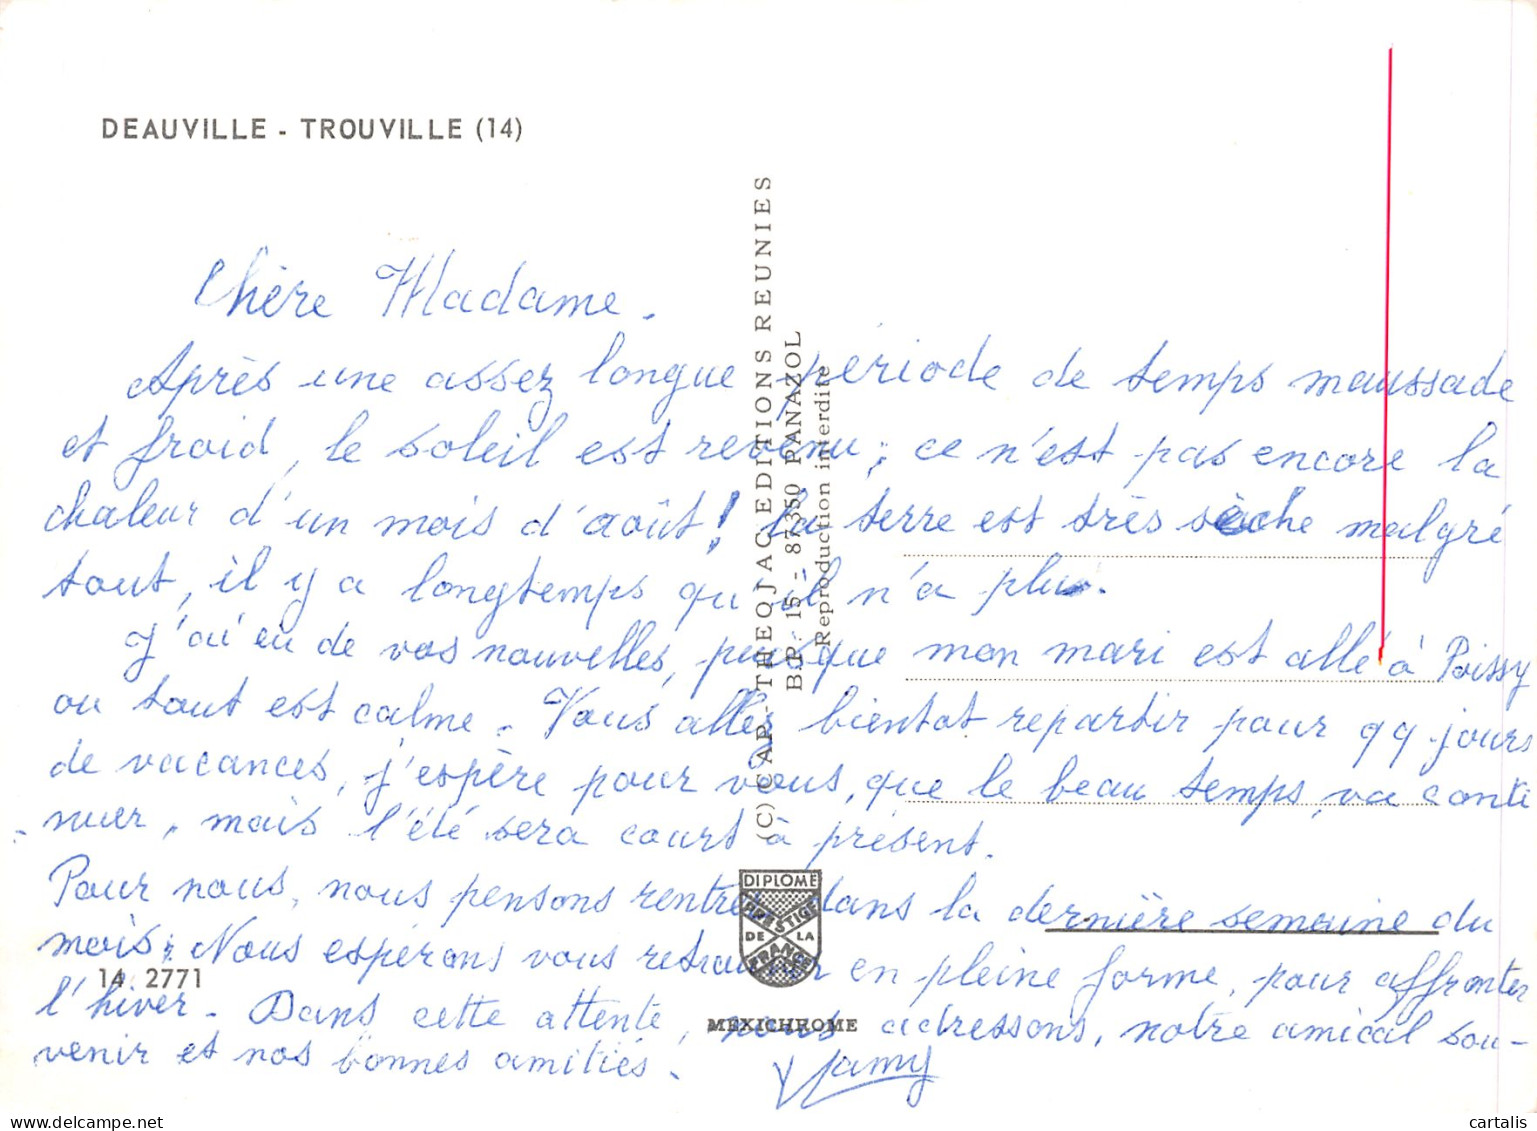 DEAUVILLE - TROUVILLE (14)
Chère Madame.
Après une assez longue période de temps maussade
et froid, le soleil est revenu ; ce n'est pas encore la
chaleur d'un mois d'août ! La terre est très sèche malgré
tout, il y a longtemps qu'il n'a plu.
J'ai eu de vos nouvelles, puisque mon mari est allé à Poissy
ou tout est calme. Vous allez bientot repartir pour 99 jours
de vacances, j'espère pour vous, que le beau temps, va conti
-nuer, mais l'été sera court à présent.
Pour nous, nous pensons rentrer dans la dernière semaine du
mois ; Nous espérons vous retrouver en pleine forme, pour affronter
l'hiver. Dans cette attente, nous adressons, notre amical sou-
venir et nos bonnes amitiés.
(C) CAP - THEOJAC EDITIONS REUNIES
B.P. 15 - 87350 PANAZOL
Reproduction interdite
DIPLOME
PRESTIGE
DE LA
FRANCE
14 2771
MEXICHROME
cartalis